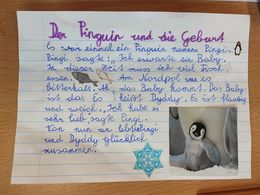 Der Pinguin und die Geburt
Es war einmal ein Pinguin namens Pingi.
Pingi sagte: Ich erwarte ein Baby.
In dieser Zeit muss ich viel Fisch
essen. Am Nordpol war es
bitterkalt. Ah, das Baby kommt. Das Baby
ist da. Es heist Dyddy. Es ist flauschig
und weich. Ich habe es
sehr lieb, sagte Pingi.
Von nun an leben Pingi
und Dyddy glücklich
zusammen.